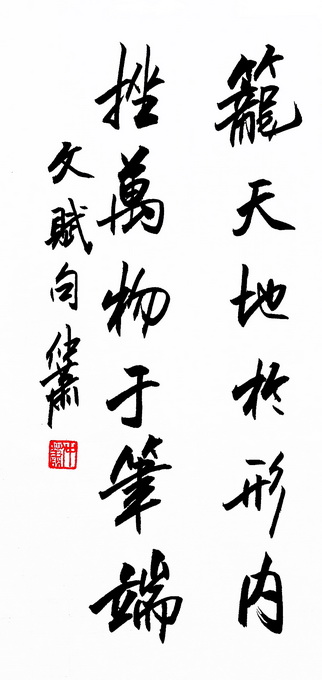 籠天地於形内
挫萬物于筆端
文賦句 仲蕭